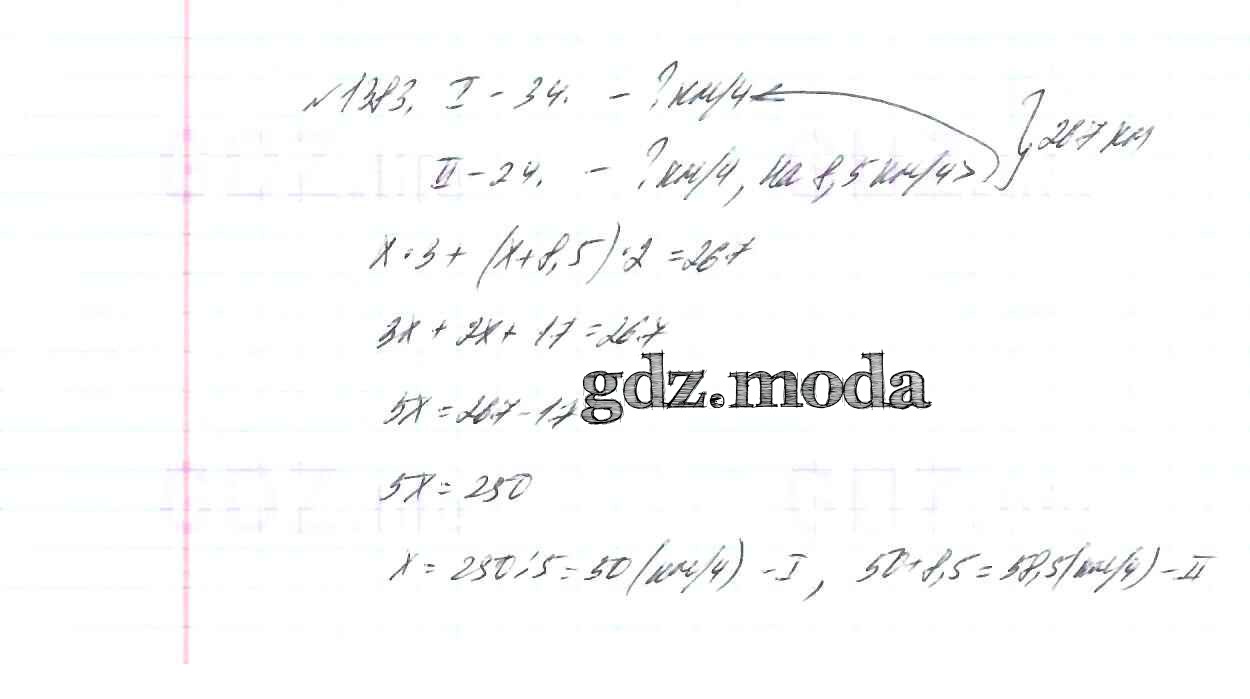 №1383. I – 3ч. – ? км/ч
II – 2ч. – ? км/ч, на 8,5 км/ч > } 267 км
x·3 + (x+8,5)·2 = 267
3x + 2x + 17 = 267
5x = 267 – 17
gdz.moda
5x = 250
x = 250 : 5 = 50 (км/ч) – I, 50+8,5 = 58,5 (км/ч) – II